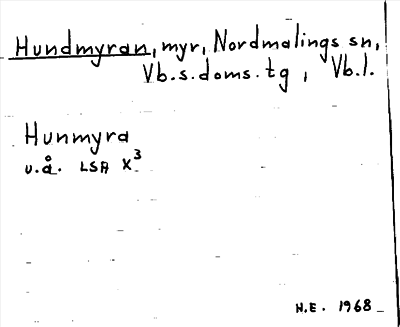 Hundmyran, myr, Nordmalings sn,
Vb.s.doms.tg, Vb.l.
Hunmyra
u.å. LSA X³
H.E. 1968